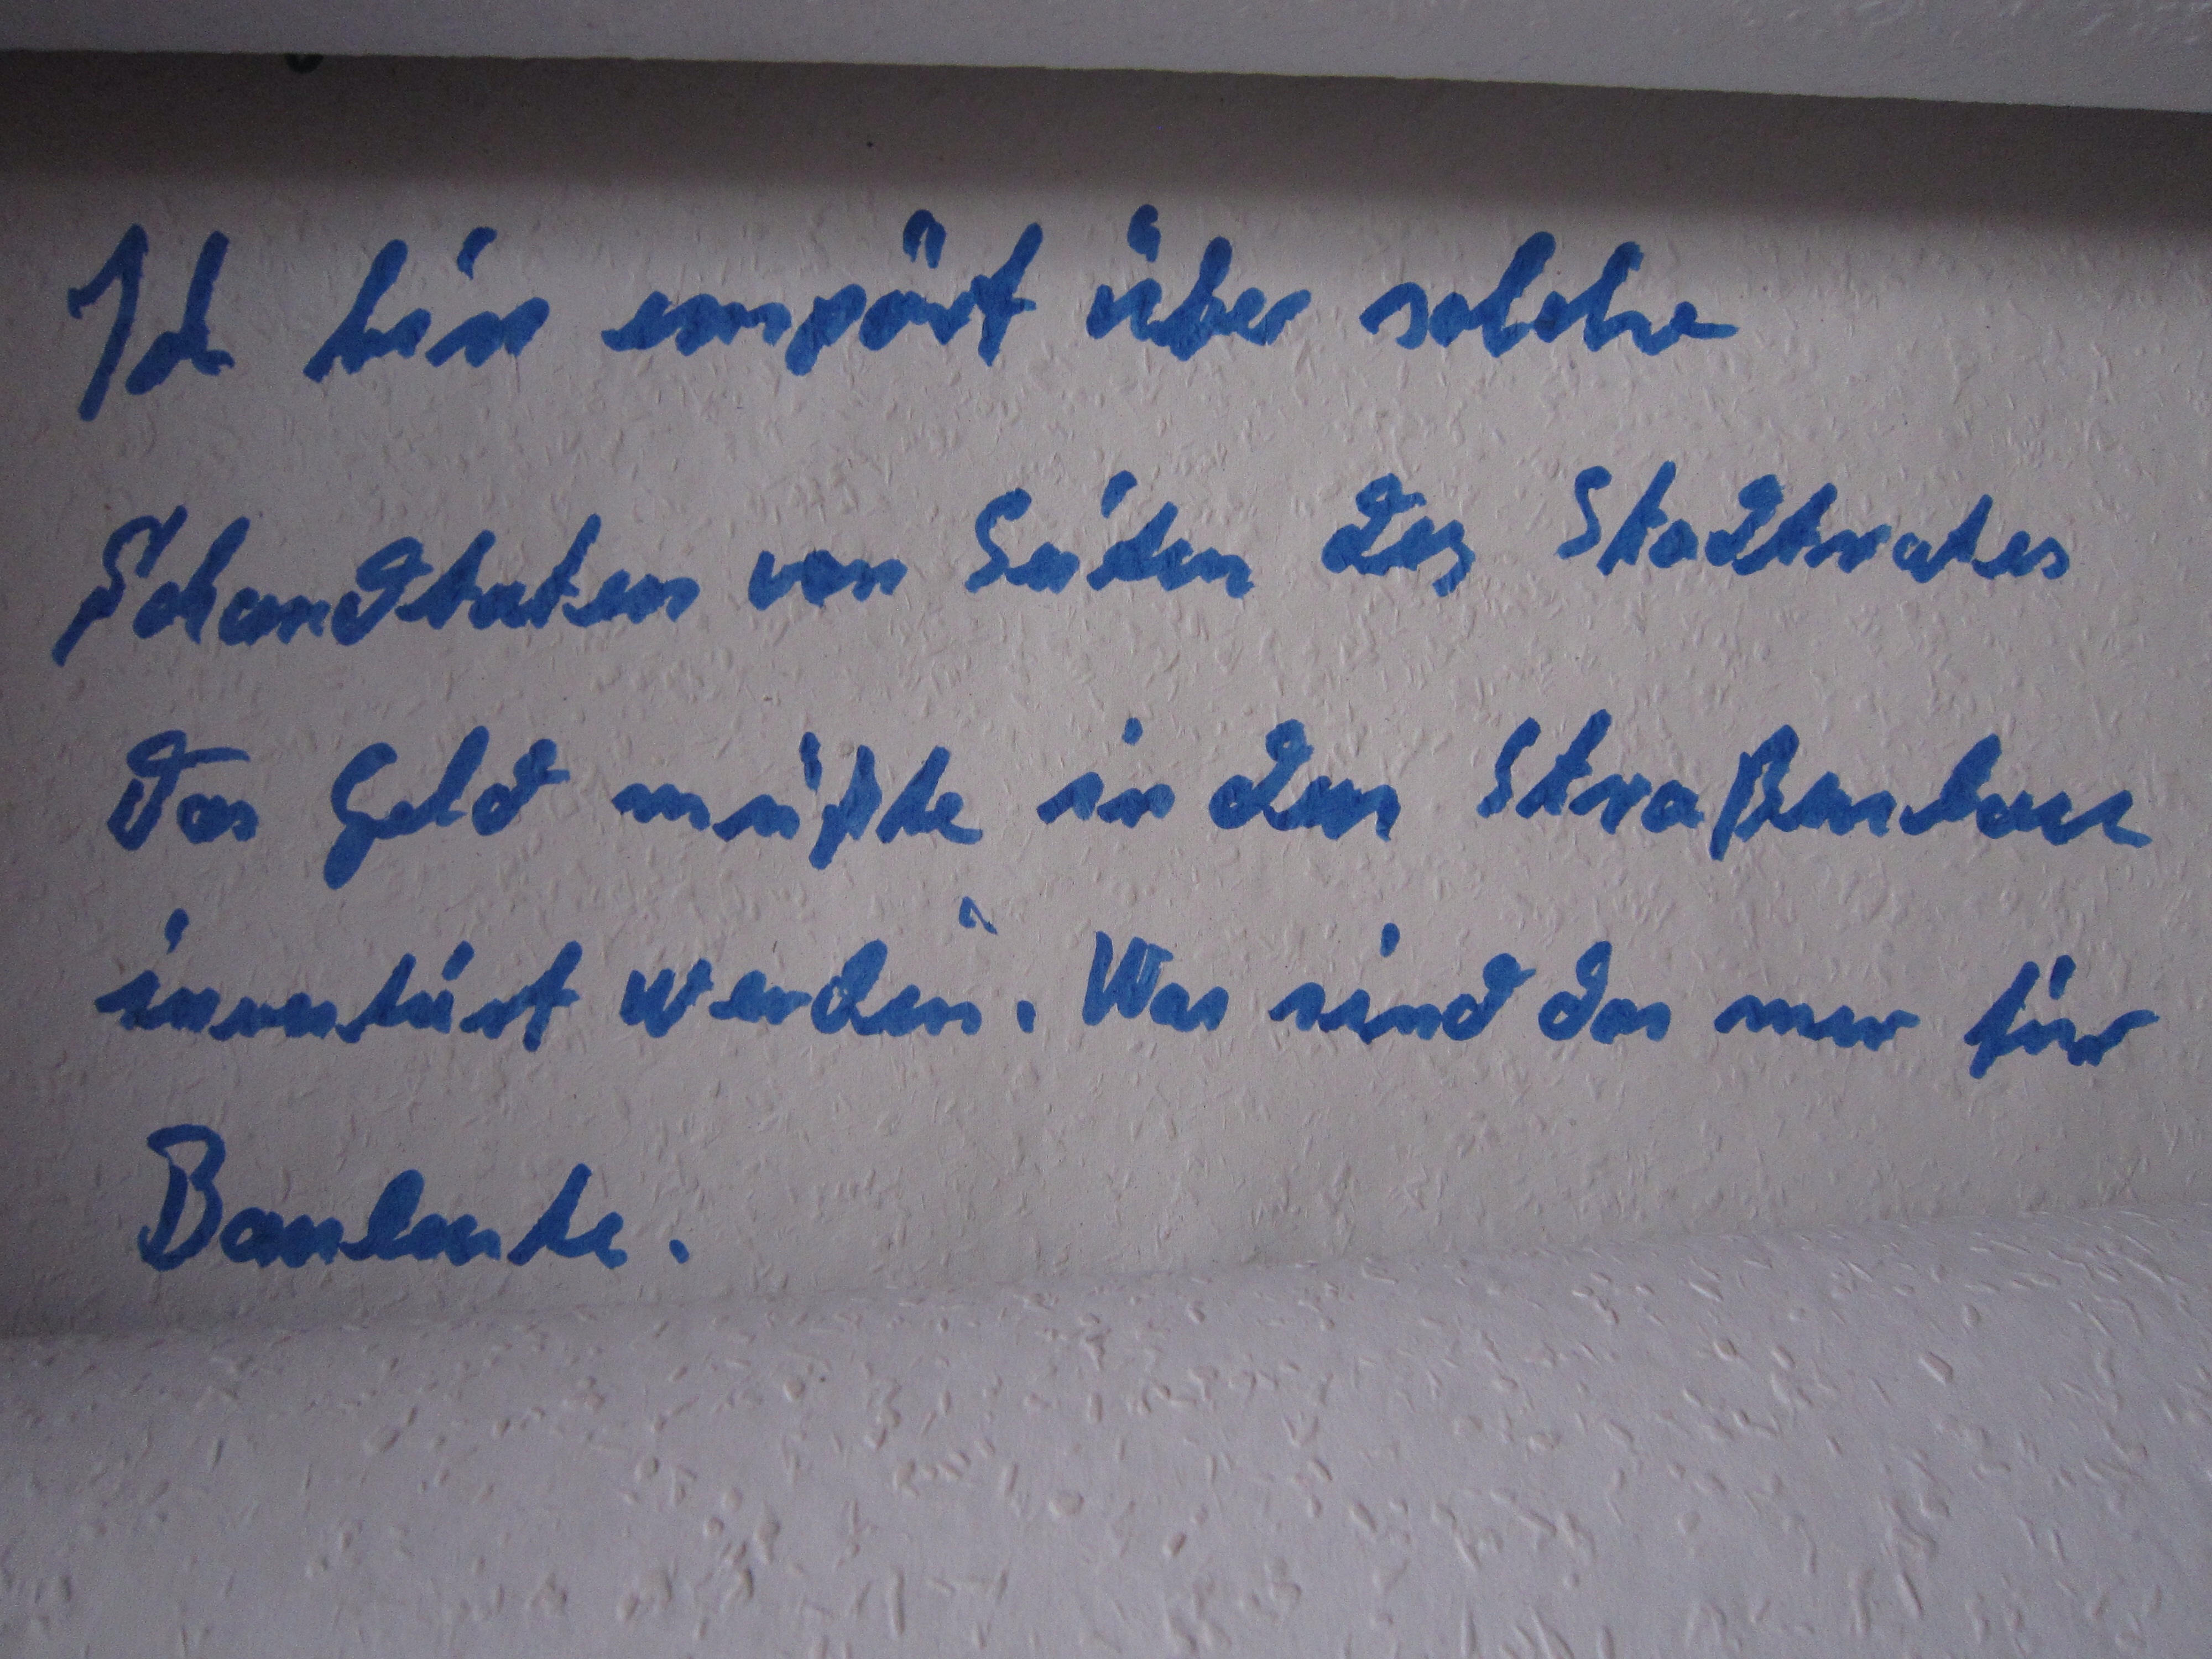 Ich bin empört über solche
Schandtaten von Seiten des Stadtrates
Das Geld müßte in den Straßenbau
investiert werden. Was sind das nur für
Bauleute.